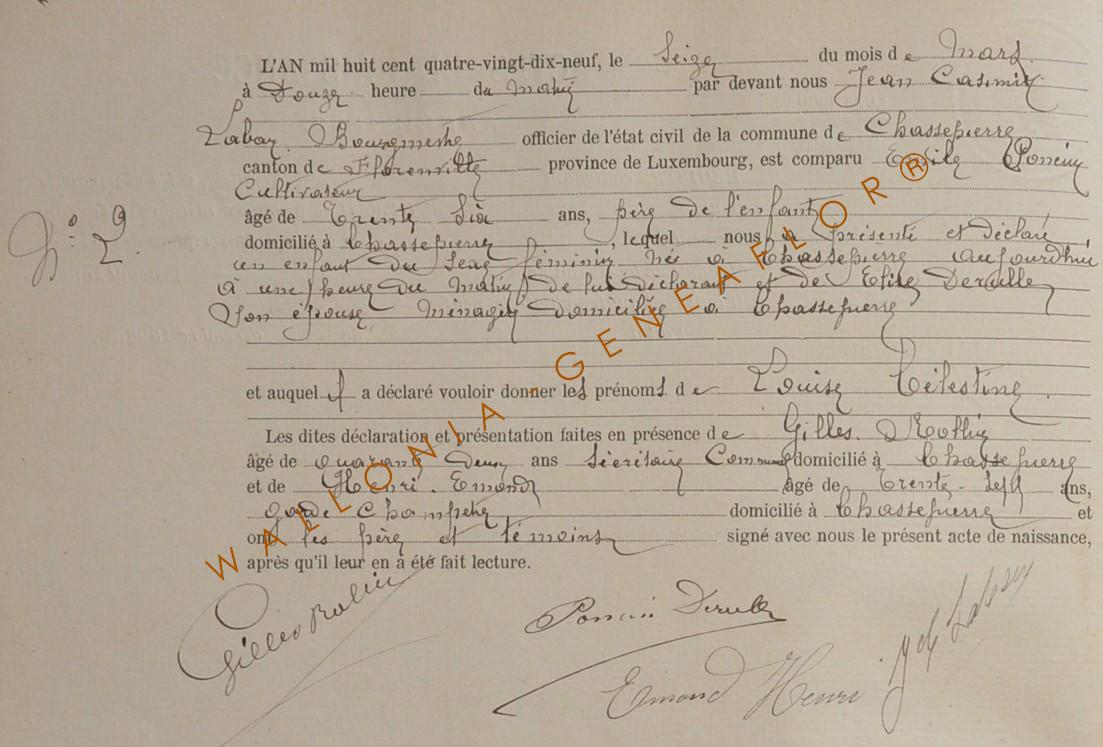 L'AN mil huit cent quatre-vingt-dix-neuf, le Seize du mois de Mars
à Douze heure du Matin par devant nous Jean Casimir
Labay Bourgmestre officier de l'état civil de la commune de Chassepierre
canton de Florenville province de Luxembourg, est comparu
Cultivateur
âgé de Trente Six ans, père de l'enfant
N° 2
domicilié à Chassepierre, lequel nous a présenté et déclaré
un enfant du Sexe féminin née à Chassepierre aujourdhui
à une heure du Matin de lui déclarant et de Elise
Son épouse Ménagère domiciliée à Chassepierre
et auquel il a déclaré vouloir donner les prénoms de Louise Célestine
Les dites déclaration et présentation faites en présence de Gilles
âgé de quarante Deux ans Sécrétaire Communal domicilié à Chassepierre
et de Henri Emond âgé de trente-Sept ans,
garde Champêtre domicilié à Chassepierre et
ont les père et témoins signé avec nous le présent acte de naissance,
après qu'il leur en a été fait lecture.
Gilles
Emond Henri
WALLONIA - GENEAFLOR®